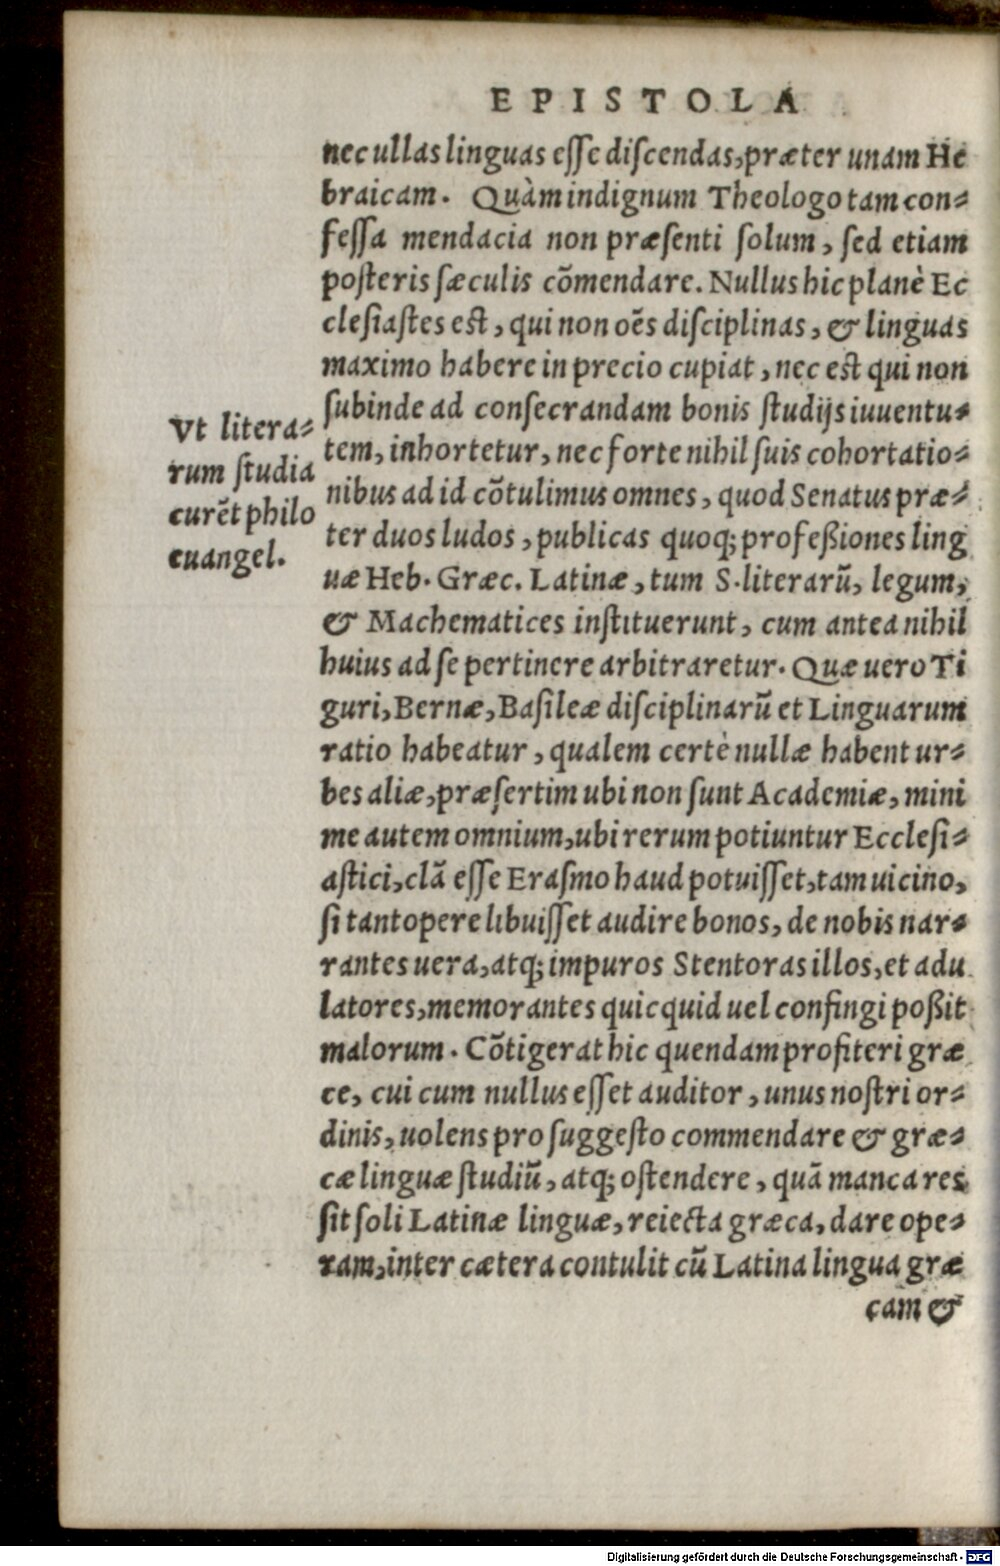 EPISTOLA
nec ullas linguas esse discendas, præter unam He
braicam. Quàm indignum Theologo tam con⸗
fessa mendacia non præsenti solum, sed etiam
posteris sæculis cõmendare. Nullus hic planè Ec
clesiastes est, qui non oẽs disciplinas, & linguas
maximo habere in precio cupiat, nec est qui non
subinde ad consecrandam bonis studijs iuuentu⸗
tem, inhortetur, nec forte nihil suis cohortatio⸗
nibus ad id cõtulimus omnes, quod Senatus præ⸗
ter duos ludos, publicas quoq; profeßiones ling
uæ Heb. Græc. Latinæ, tum S. literarũ, legum,
& Machematices instituerunt, cum antea nihil
huius ad se pertinere arbitraretur. Quæ uero Ti
guri, Bernæ, Basileæ disciplinarũ et Linguarum
ratio habeatur, qualem certè nullæ habent ur⸗
bes aliæ, præsertim ubi non sunt Academiæ, mini
me autem omnium, ubi rerum potiuntur Ecclesi⸗
astici, clã esse Erasmo haud potuisset, tam uicino,
si tantopere libuisset audire bonos, de nobis nar⸗
rantes uera, atq; impuros Stentoras illos, et adu
latores, memorantes quicquid uel confingi poßit
malorum. Cõtigerat hic quendam profiteri græ
ce, cui cum nullus esset auditor, unus nostri or⸗
dinis, uolens pro suggesto commendare & græ⸗
cæ linguæ studiũ, atq; ostendere, quã manca res
sit soli Latinæ linguæ, reiecta græca, dare ope⸗
ram, inter cætera contulit cũ Latina lingua græ
cam &
Vt litera⸗
rum studia
curẽt philo
euangel.
Digitalisierung gefördert durch die Deutsche Forschungsgemeinschaft - DFG